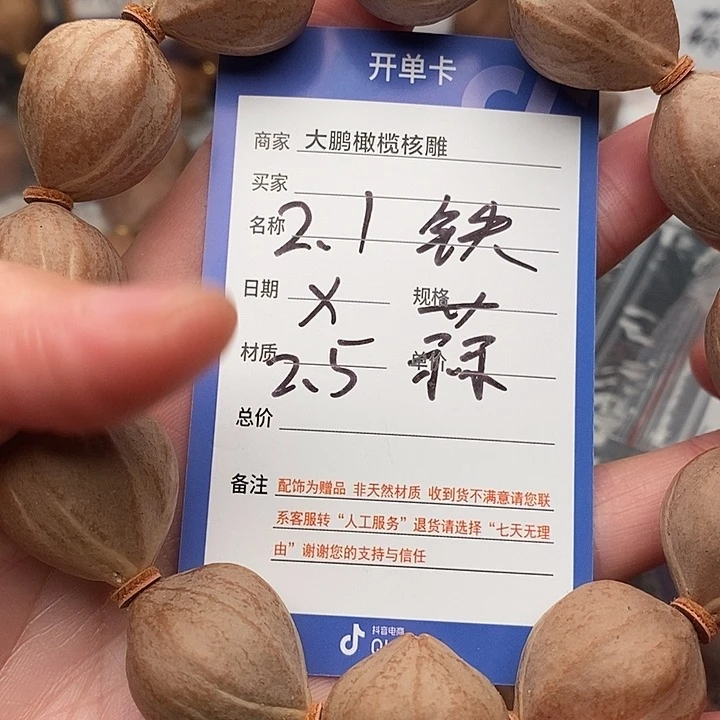 开单卡
商家 大鹏橄榄核雕
买家
名称 2.1 铁
日期 X 规格
材质 2.5 蒜
单价
总价
备注 配饰为赠品 非天然材质 收到货不满意请您联
系客服转“人工服务”退货请选择“七天无理
由”谢谢您的支持与信任
抖音电商